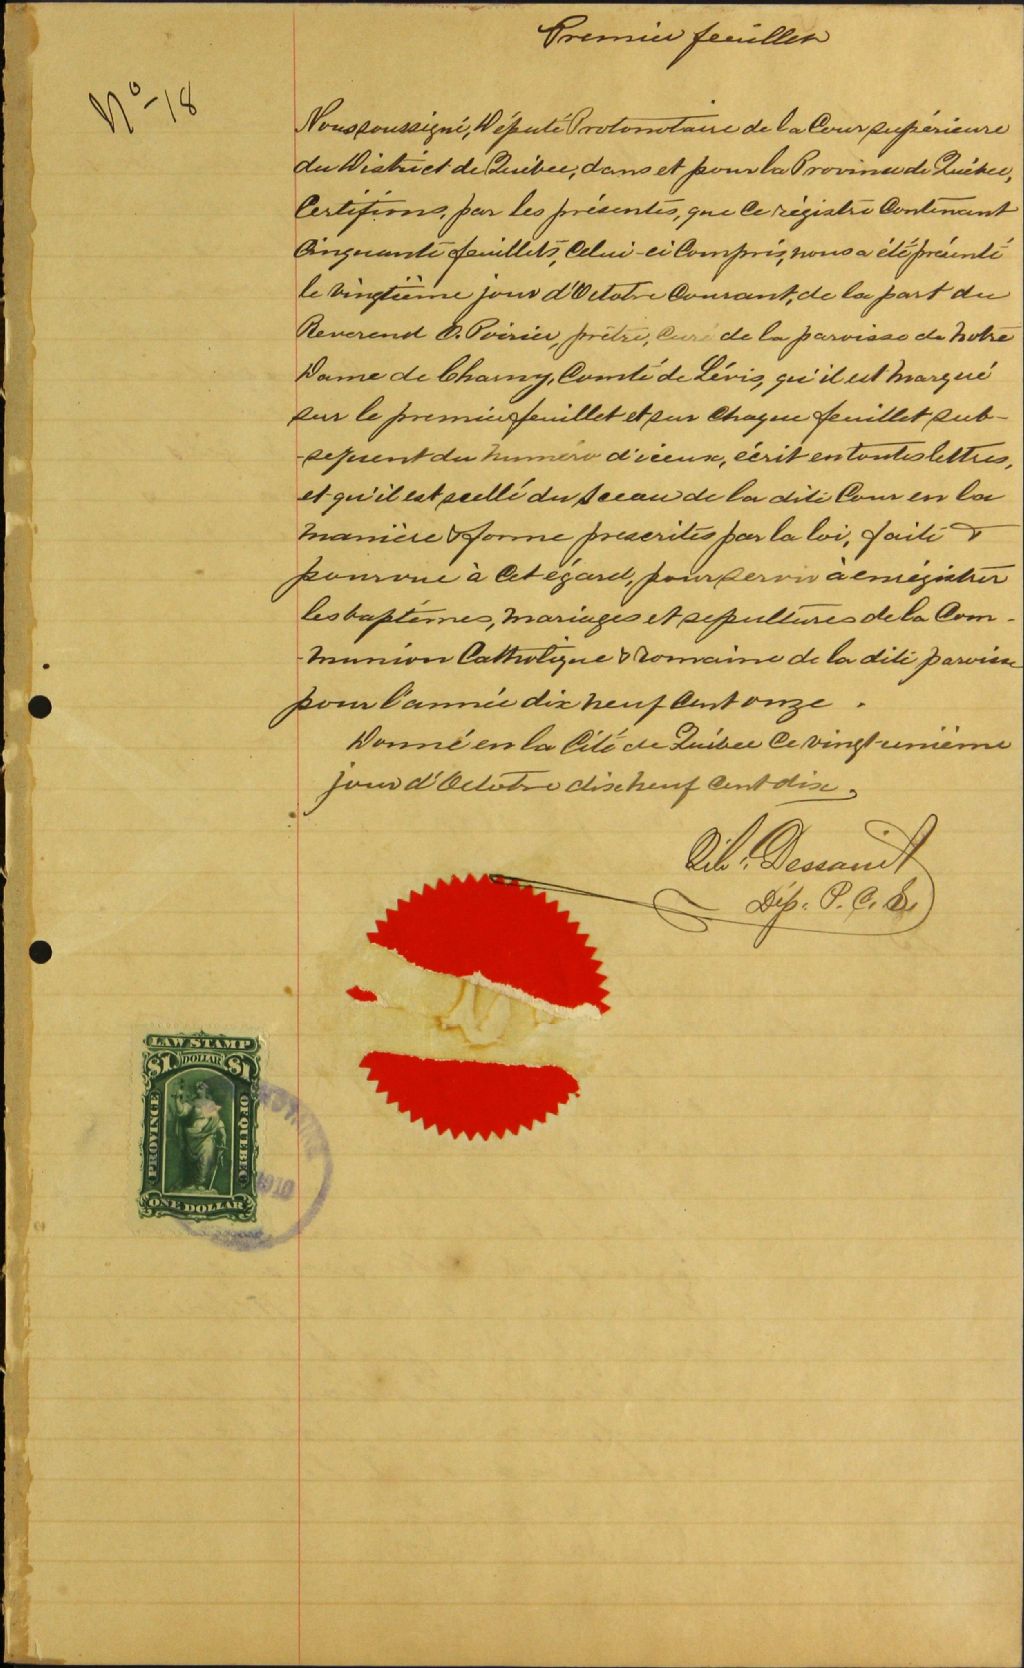 Premier feuillet
No 18
Nous soussigné, Député Protonotaire de la Cour supérieure
du District de Québec, dans et pour la Province de Québec,
Certifions, par les présentes, que ce régistre contenant
Cinquante feuillets, celui-ci compris, nous a été présenté
le vingtième jour d'Octobre courant, de la part du
Reverend O. Poirier, prêtre, curé de la paroisse de Notre
Dame de Charny, Comté de Lévis, qu'il est marqué
sur le premier feuillet et sur chaque feuillet sub-
-séquent du numéro d'iceux, écrit en toutes lettres,
et qu'il est scellé du sceau de la dite Cour en la
manière & forme prescrites par la loi, faite &
pourvue à cet égard, pour servir à enrégistrer
les baptêmes, mariages et sépultures de la Com-
-munion Catholique & romaine de la dite paroisse
pour l'année dix neuf cent onze.
Donné en la Cité de Québec ce vingt-unième
jour d'Octobre dix neuf cent dix.
Dessault
Dép. P. C. S.
LAW STAMP
$1 DOLLAR $1
PROVINCE OF QUEBEC
ONE DOLLAR
1910